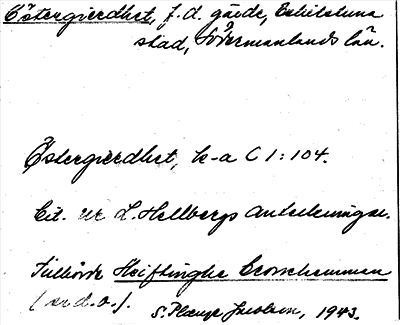 Östergierdhet, f.d. gärde, Eskilstuna
stad, Södermanlands län.
Östergierdhet, k-a C 1:104.
Cit. ur L. Hellbergs anteckningar.
Tillhörde Heiflinghe
(se d.o.). S. 1943.